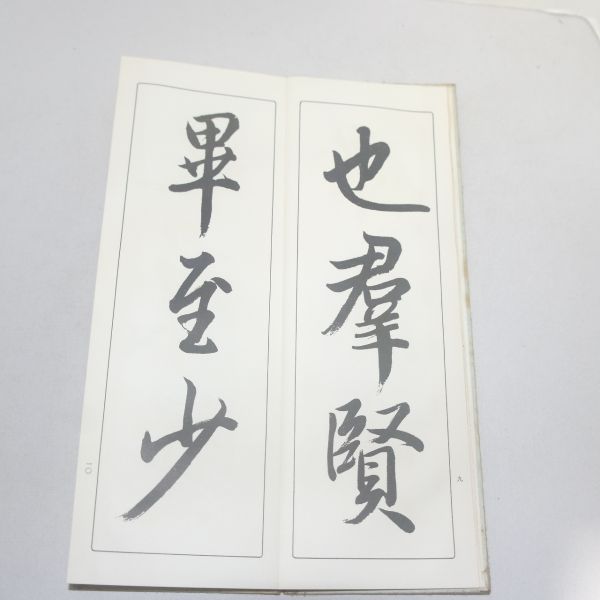 也羣賢
九
畢至少
一〇